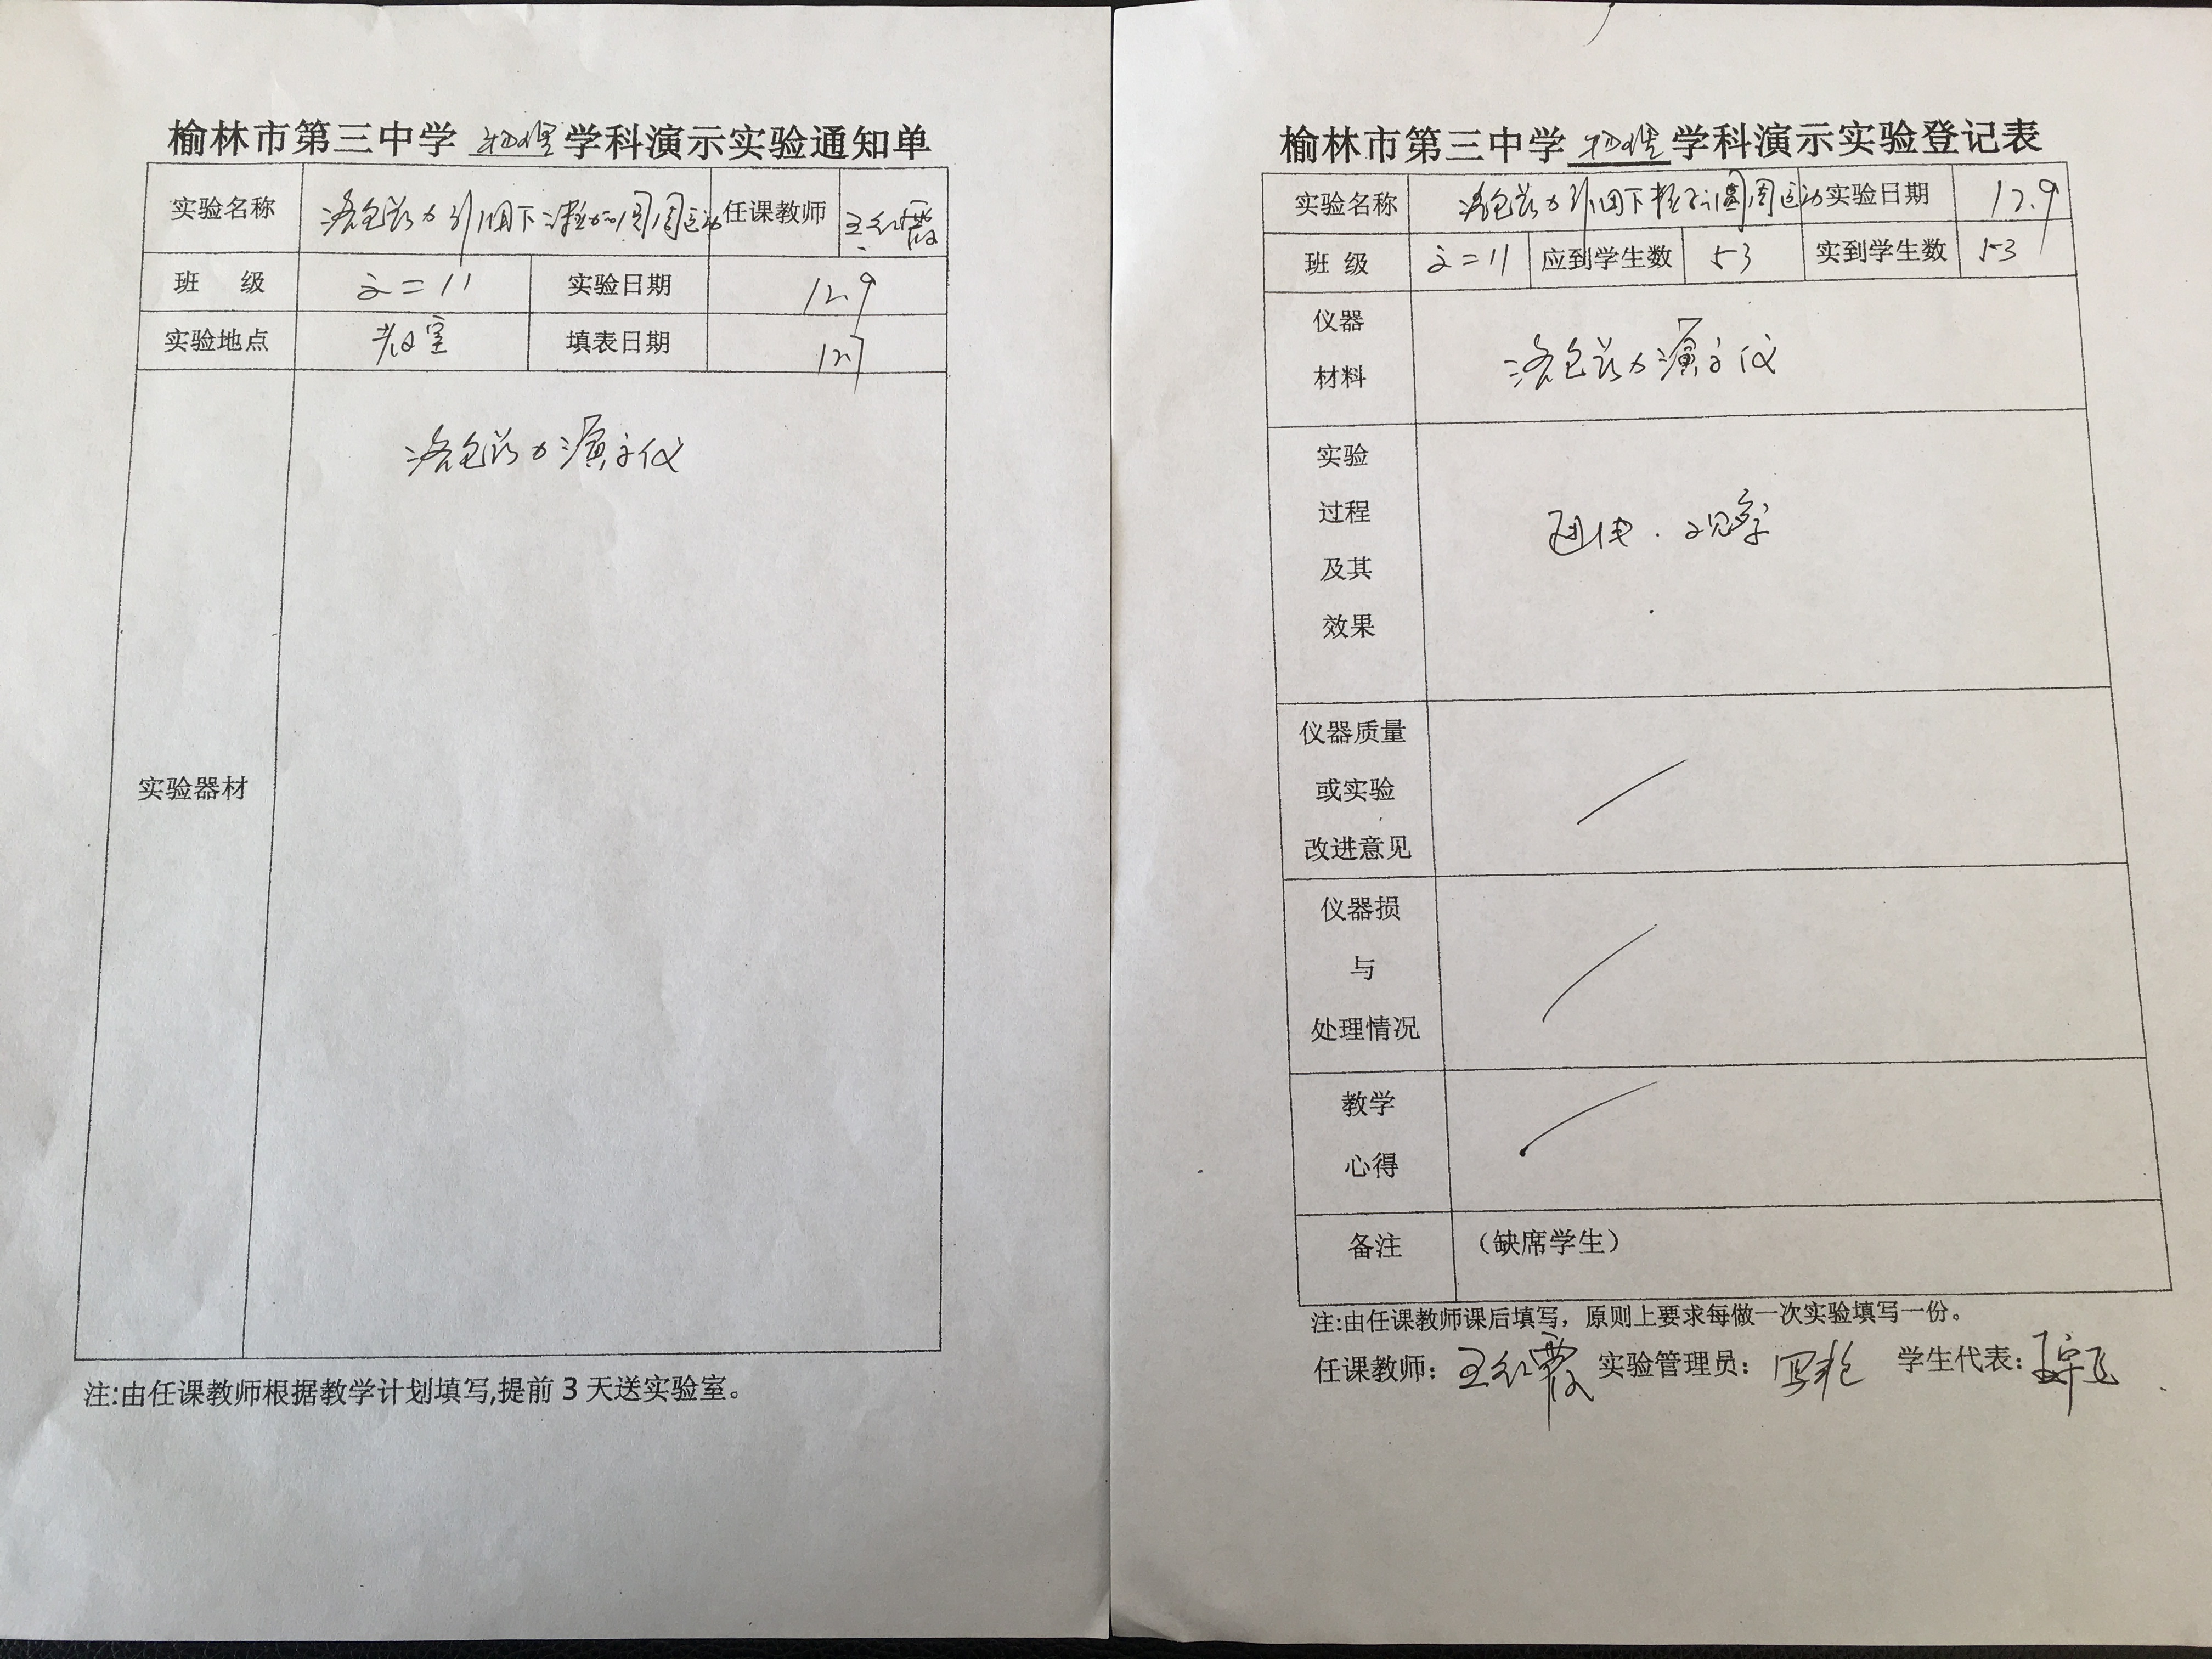 榆林市第三中学 物理 学科演示实验通知单
实验名称 洛仑兹力 任课教师 王红霞
班 级 实验日期 12.9
实验地点 教室 填表日期 12.7
实验器材 洛仑兹力演示仪
注:由任课教师根据教学计划填写,提前3天送实验室。
榆林市第三中学 物理 学科演示实验登记表
实验名称 洛仑兹力 实验日期 12.9
班 级 应到学生数 53 实到学生数 53
仪器
材料
洛仑兹力演示仪
实验
过程
及其
效果
观察
仪器质量
或实验
改进意见
仪器损
与
处理情况
教学
心得
备注 (缺席学生)
注:由任课教师课后填写，原则上要求每做一次实验填写一份。
任课教师: 王红霞 实验管理员: 学生代表: